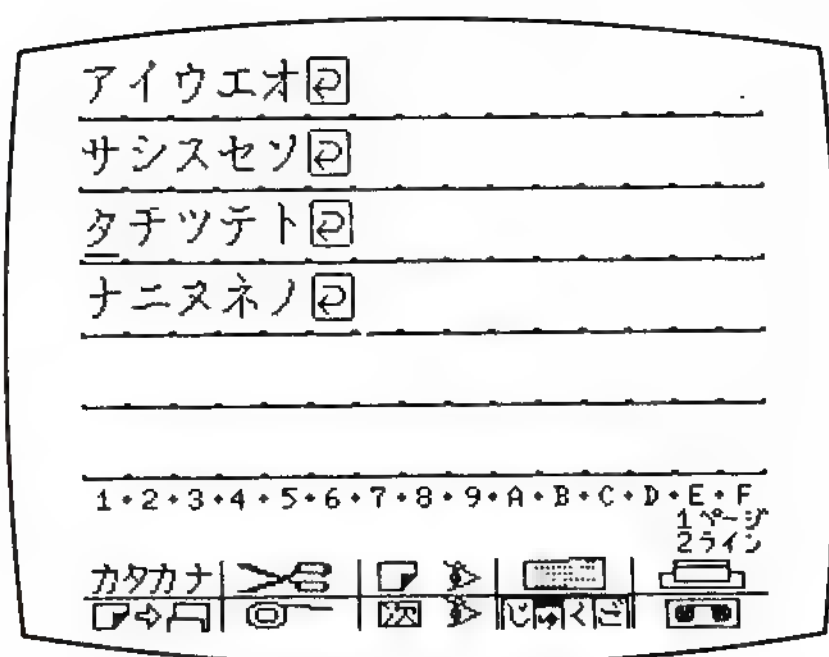 アイウエオ
サシスセソ
タチツテト
ナニヌネノ
1・2・3・4・5・6・7・8・9・A・B・C・D・E・F
1ページ
2ライン
カタカナ
次 じゅくご